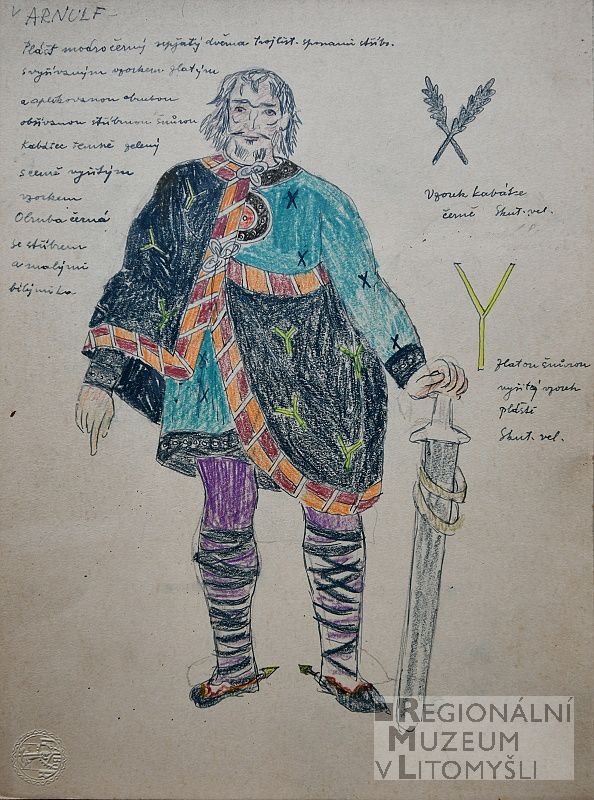 V ARNULF
Plášť modročerný sepjatý dvěma trojlist. sponami stříbr.
s vyšívaným vzorkem zlatým
a aplikovanou obrubou
obšívanou stříbrnou šňůrou
Kabátec temně zelený
s černě vyšitým
vzorkem
Obruba černá
se stříbrem
a malými
Vzorek kabátce
černě Skut. vel.
Zlatou šňůrou
vyšitý vzorek
pláště
Skut. vel.
REGIONÁLNÍ
MUZEUM
V LITOMYŠLI